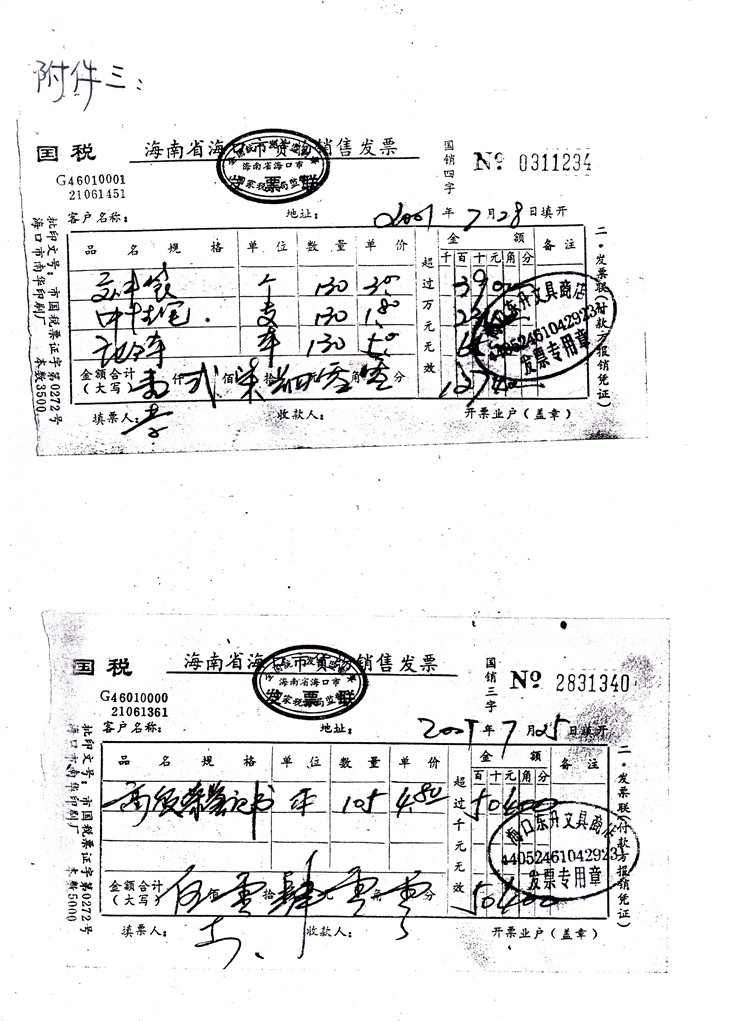 附件三:
国税 海南省海口市货物销售发票
海南省海口市
发票联
国家税务局监制
国销四字 № 0311234
G46010001
21061451
客户名称: 地址: 2001年7月28日填开
品名规格 单位 数量 单价 金额 备注
千百十元角分
文件袋 个 130 3.0
支 130 1.80
130 5.0
超过万元无效
金额合计(大写) 仟 佰 拾 元 角 分
填票人: 收款人: 开票业户(盖章)
海口东升文具商店
440524610429231
发票专用章
二·发票联(付款方报销凭证)
批印文号:市国税票证字第0272号
海口市南华印刷厂 本数3500
国税 海南省海口市货物销售发票
海南省海口市
发票联
国家税务局监制
国销三字 № 2831340
G46010000
21061361
客户名称: 地址: 2001年7月25日填开
品名规格 单位 数量 单价 金额 备注
百十元角分
高级荣誉证书 本 105 4.80 50400
超过千元无效
金额合计(大写) 伍 佰 零 拾 肆 元 零 角 零 分 50400
填票人: 收款人: 开票业户(盖章)
海口东升文具商店
440524610429231
发票专用章
二·发票联(付款方报销凭证)
批印文号:市国税票证字第0272号
海口市南华印刷厂 本数5000